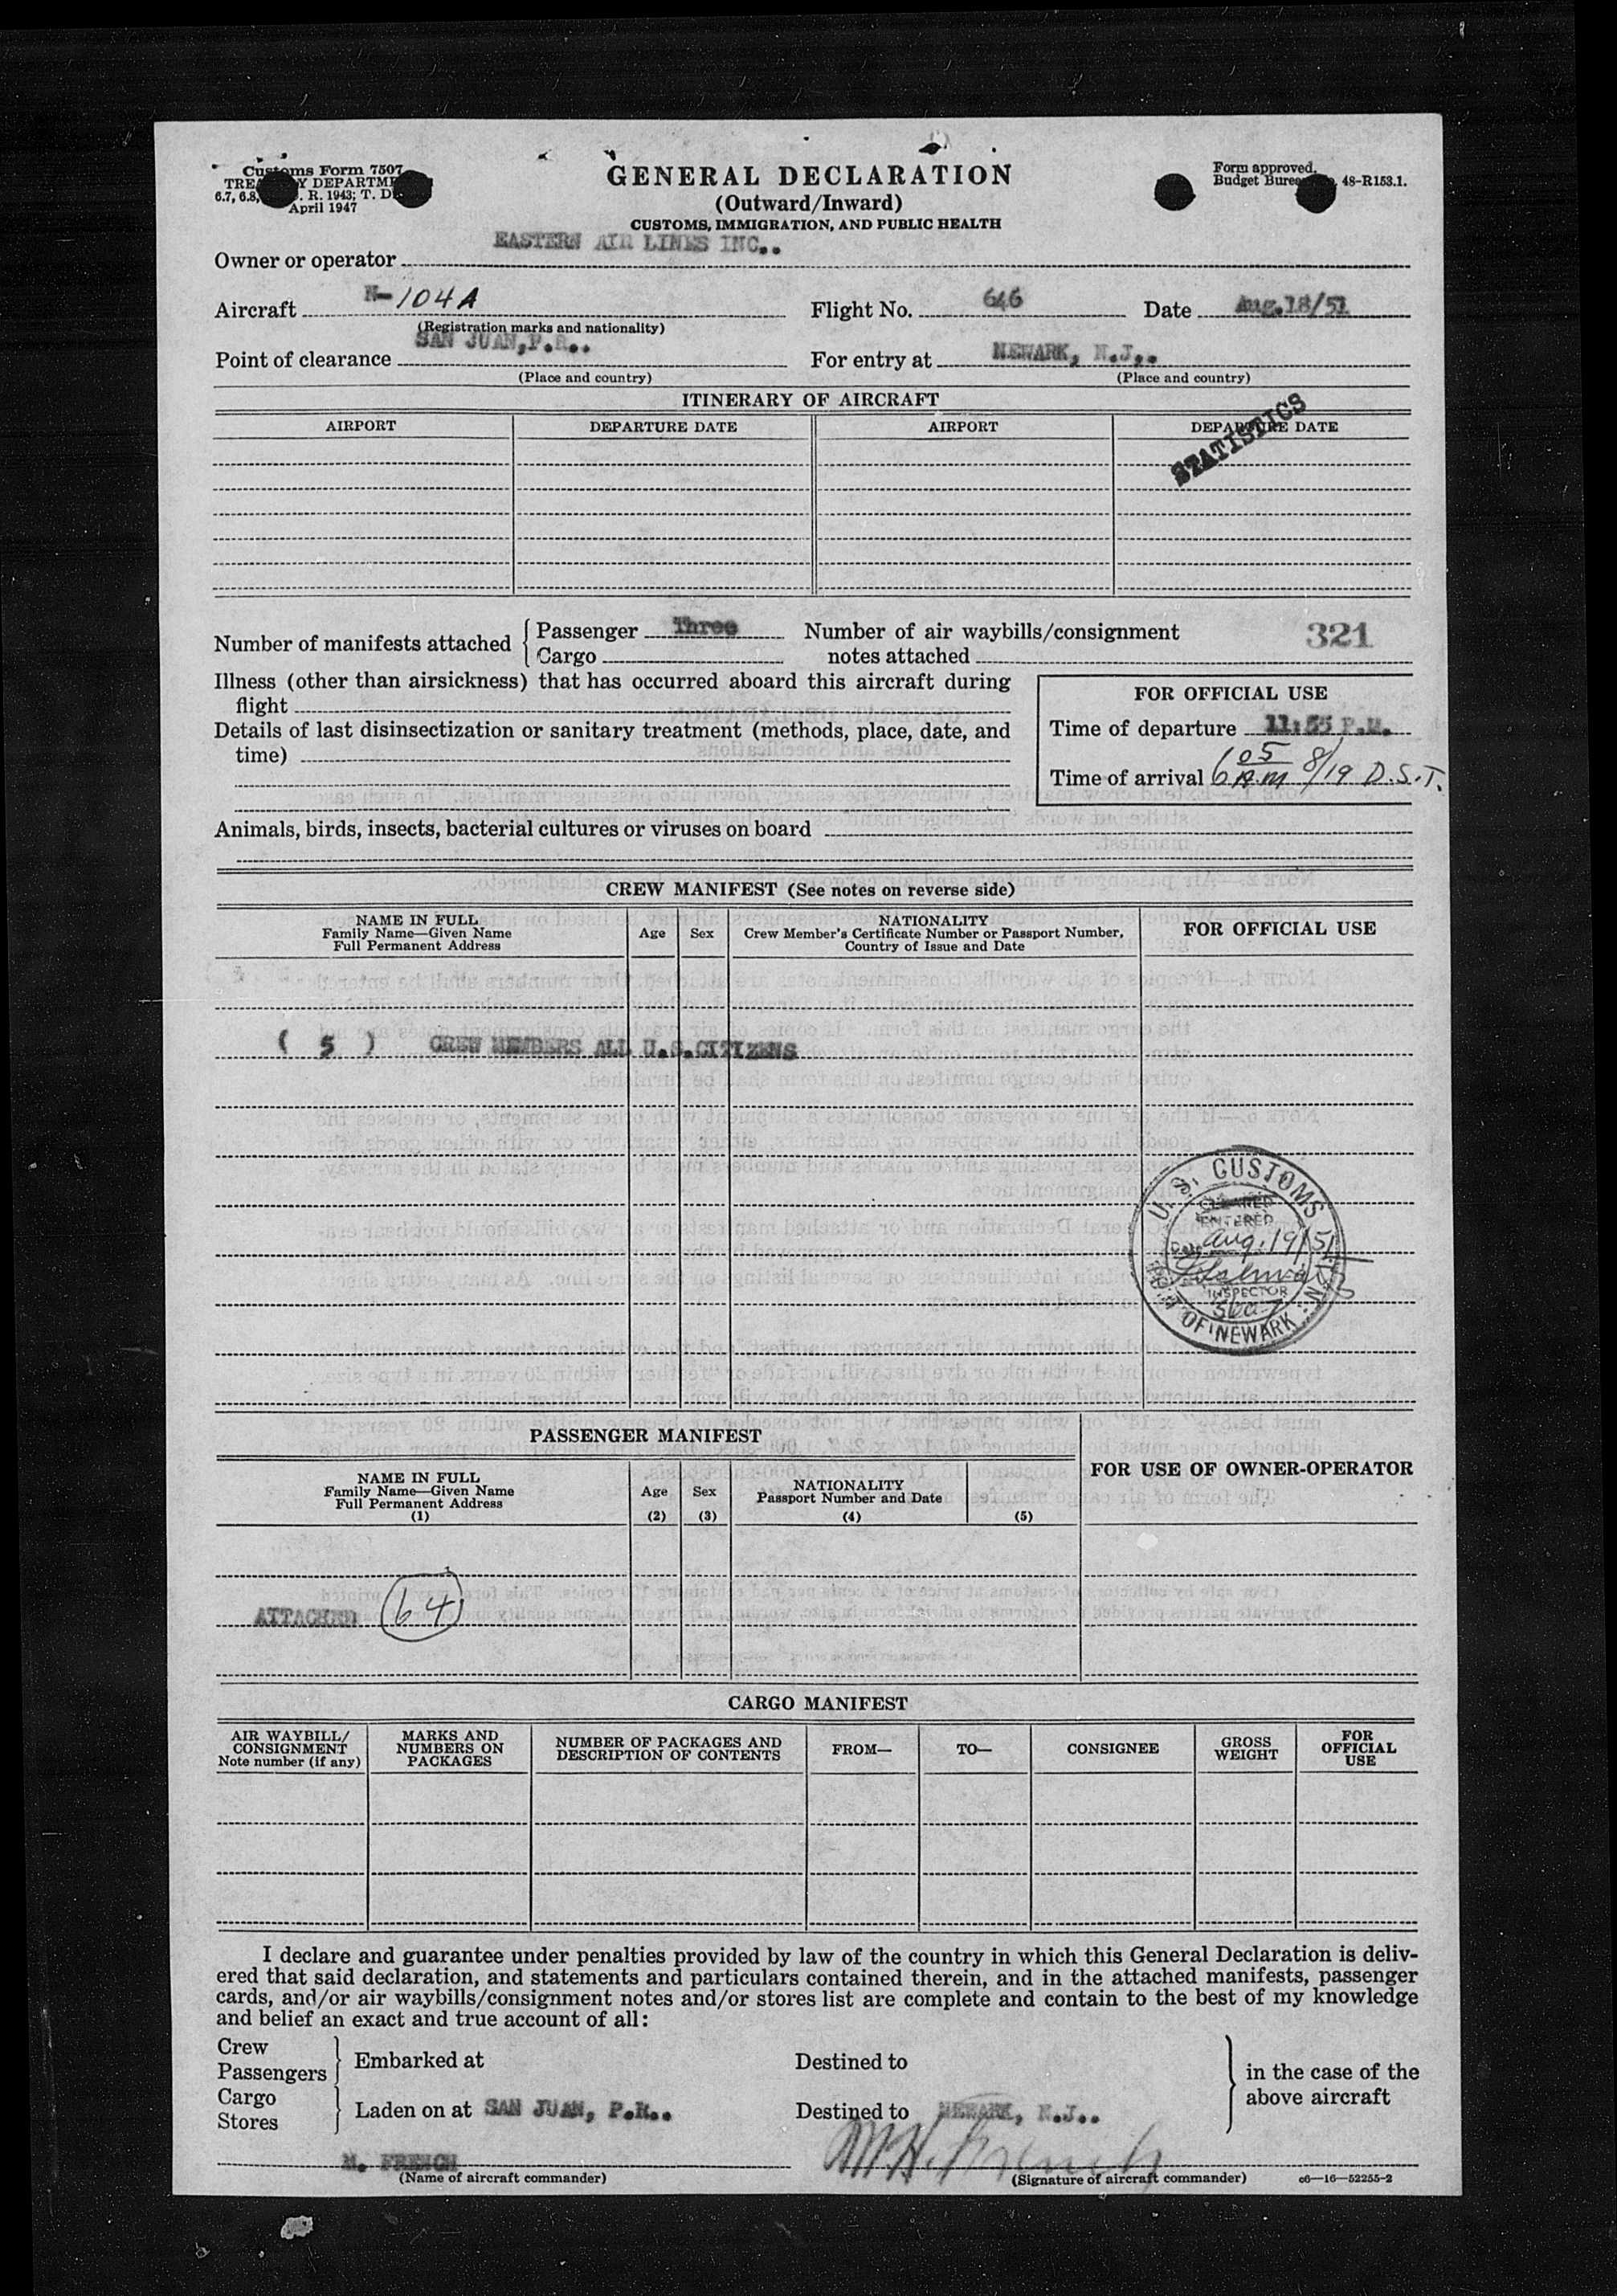 Customs Form 7507
TREASURY DEPARTMENT
6.7, 6.8, R. 1943; T. D.
April 1947
GENERAL DECLARATION
(Outward/Inward)
CUSTOMS, IMMIGRATION, AND PUBLIC HEALTH
Form approved.
Budget Bureau 48-R153.1.
Owner or operator EASTERN AIR LINES INC..
Aircraft N-104A Flight No. 646 Date Aug.18/51
(Registration marks and nationality)
Point of clearance SAN JUAN,P.R.. For entry at NEWARK, N.J,.
(Place and country) (Place and country)
ITINERARY OF AIRCRAFT
AIRPORT DEPARTURE DATE AIRPORT DEPARTURE DATE
STATISTICS
Number of manifests attached { Passenger Three Number of air waybills/consignment 321
Cargo notes attached
Illness (other than airsickness) that has occurred aboard this aircraft during
flight
Details of last disinsectization or sanitary treatment (methods, place, date, and
time)
FOR OFFICIAL USE
Time of departure 11:55 P.M.
Time of arrival 6 05 A.M 8/19 D.S.T.
Animals, birds, insects, bacterial cultures or viruses on board
CREW MANIFEST (See notes on reverse side)
NAME IN FULL
Family Name—Given Name
Full Permanent Address
Age
Sex
NATIONALITY
Crew Member's Certificate Number or Passport Number,
Country of Issue and Date
FOR OFFICIAL USE
( 5 ) CREW MEMBERS ALL U.S.CITIZENS
U. S. CUSTOMS
CLEARED
ENTERED
Date Aug. 19/51
INSPECTOR
PORT OF NEWARK, N.J.
PASSENGER MANIFEST
NAME IN FULL
Family Name—Given Name
Full Permanent Address
(1)
Age
(2)
Sex
(3)
NATIONALITY
Passport Number and Date
(4)
(5)
FOR USE OF OWNER-OPERATOR
ATTACHED 64
CARGO MANIFEST
AIR WAYBILL/
CONSIGNMENT
Note number (if any)
MARKS AND
NUMBERS ON
PACKAGES
NUMBER OF PACKAGES AND
DESCRIPTION OF CONTENTS
FROM—
TO—
CONSIGNEE
GROSS
WEIGHT
FOR
OFFICIAL
USE
I declare and guarantee under penalties provided by law of the country in which this General Declaration is deliv-
ered that said declaration, and statements and particulars contained therein, and in the attached manifests, passenger
cards, and/or air waybills/consignment notes and/or stores list are complete and contain to the best of my knowledge
and belief an exact and true account of all:
Crew
Passengers } Embarked at Destined to
Cargo
Stores } Laden on at SAN JUAN, P.R.. Destined to NEWARK, N.J..
} in the case of the
above aircraft
M. FRENCH M H. French
(Name of aircraft commander) (Signature of aircraft commander) c6—16—52255-2